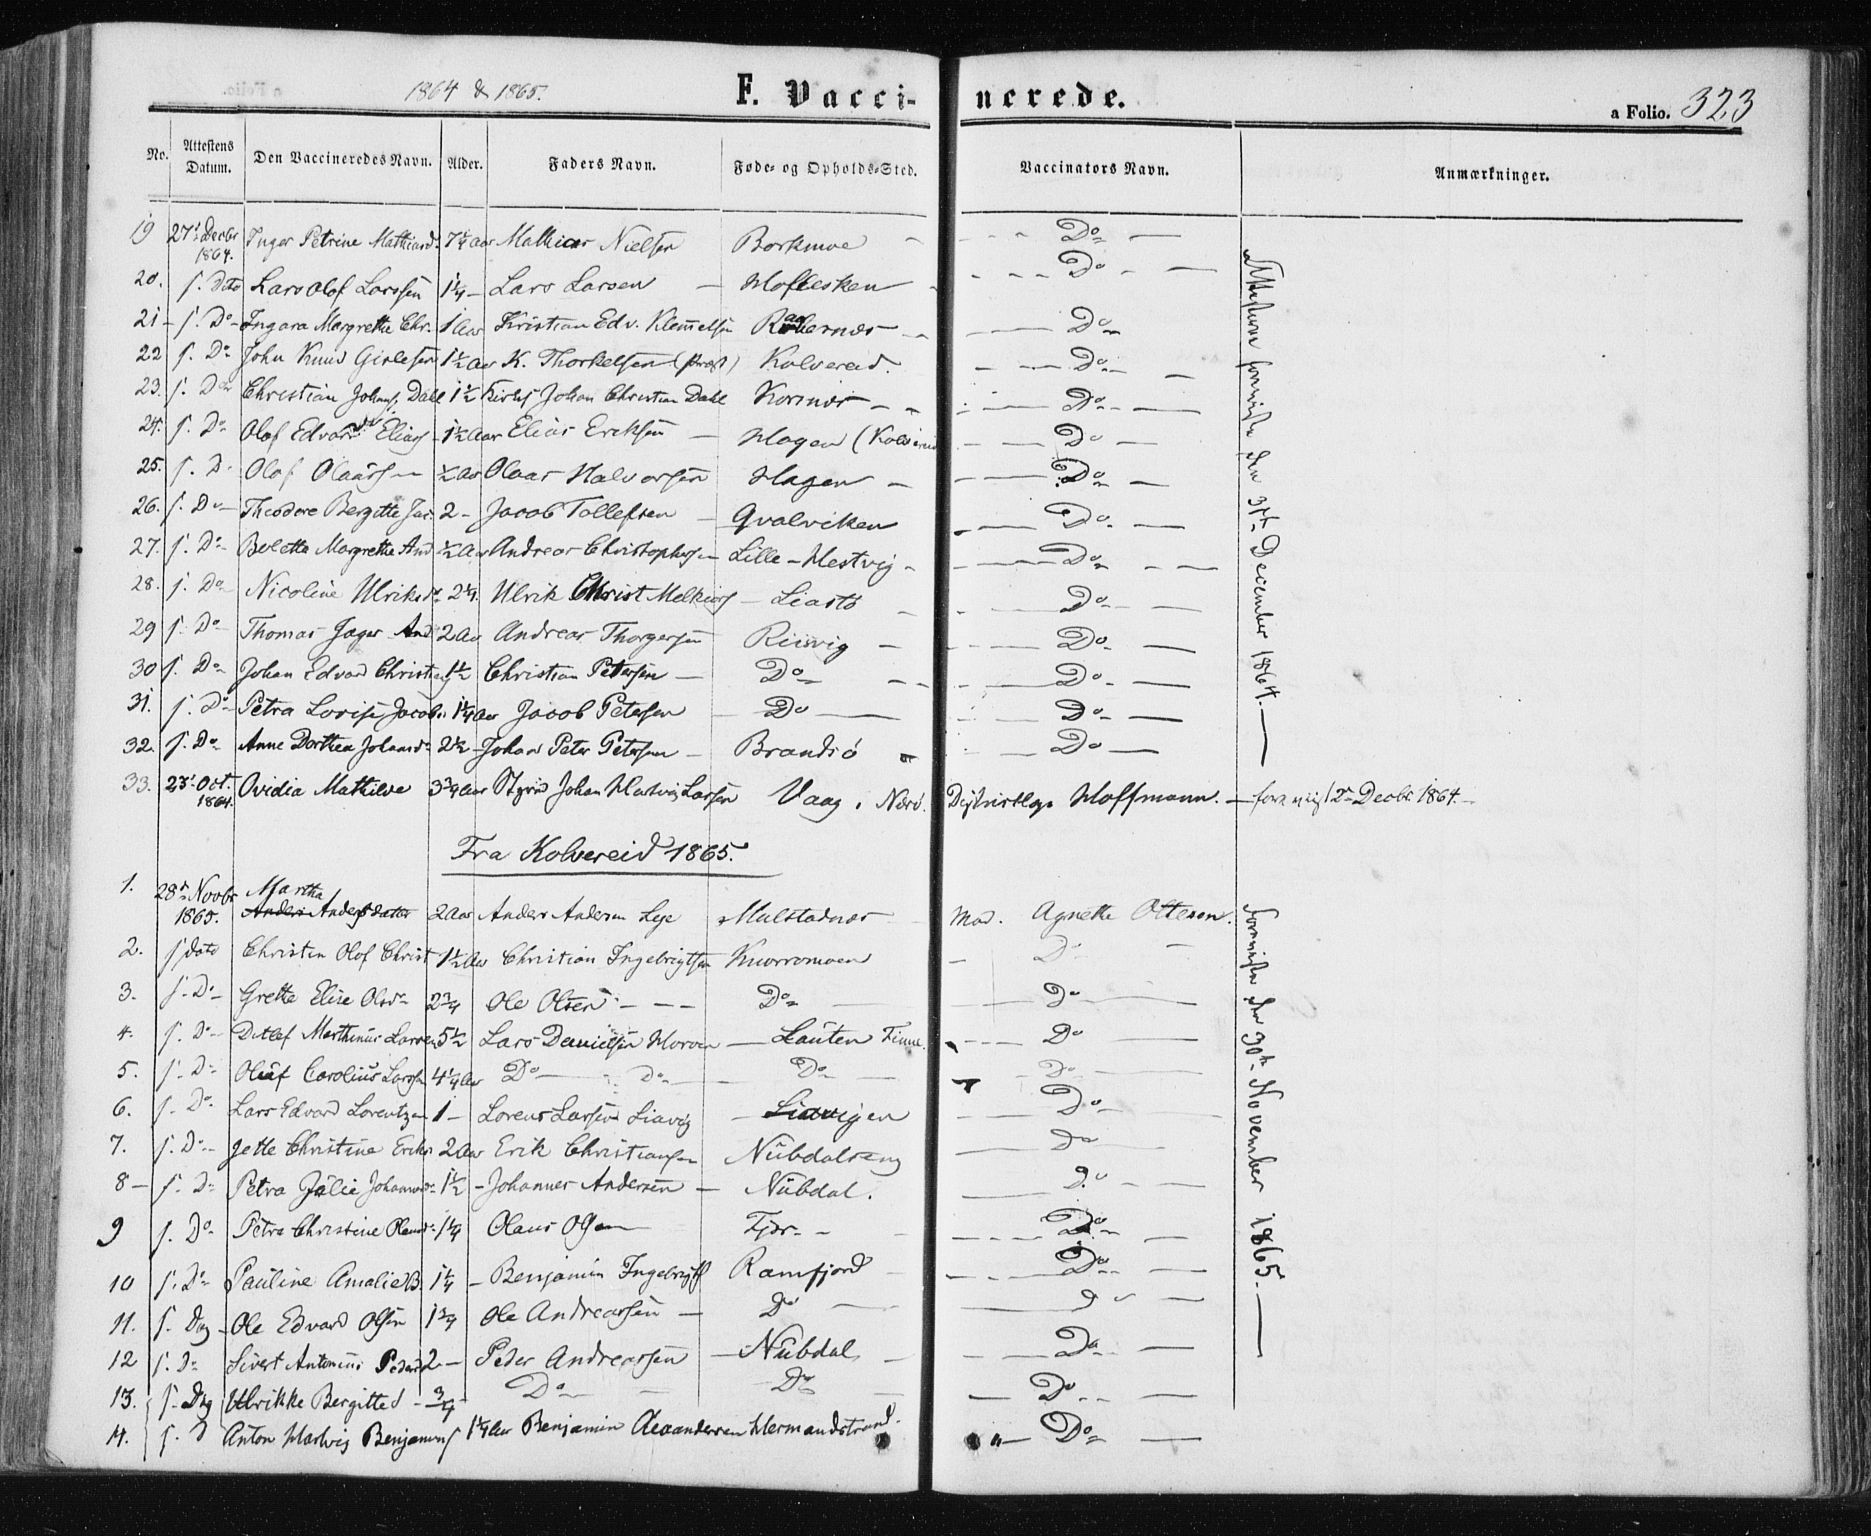 1864 & 1865.
F. Vaccinerede.
a Folio. 323
No. Attestens Datum. Den Vaccineredes Navn. Alder. Faders Navn. Føde- og Opholds-Sted. Vaccinators Navn. Anmærkninger.
19 27' Decbr 1864. Inger Petrine Mathiasd. 7¼ aar Mathias Nielsen Borkmoe Do
20. s. Dato Lars Olof Larssen 1¼ Lars Larsen Hoflesken Do
21 s. Do Ingara Margrethe Chr. 1 aar Kristian Edv. Klemetsen Do
22 s. Do John Knud Gislesen 1½ aar K. Thorkelsen (præst) Kolvereid. Do
23. s. Do Christian Johans. Dahl 1½ Johan Christian Dahl Kornes Do
24. s. Do Olof Edvard Elias 1½ aar Elias Eriksen Hagen (Kolvereid Do
25. s. D. Olof Olaüssen ½ aar Olaus Halvorsen Hagen Do
26. s. Do Theodore Bergitte Jac. 2 Jacob Tollefsen Qvalviken Do
27. s. Do Bolette Margrethe And ½ aar Andreas Christophersen Lille-Hestvig Do
28. s. Do Nicoline Ulriksd. 2¼ Ulrik Christ Melkiors Liastø Do
29 s. Do Thomas Jæger And 2 aar Andreas Thorgersen Riisvig Do
30 s. Do Johan Edvard Christians 1½ Christian Petersen Do Do
31. s. Do Petra Lovise Jacobs. 1¼ aar Jacob Petersen Do Do
32. s. Do Anne Dorthea Johansd. 2½ Johan Peter Petersen Brandsø Do
Attesterne foreviste den 31te December 1864.
33. 23' Oct. 1864. Ovidia Mathilde 3¾ aar Johan Hartvig Larsen Vaag i Nærø. Distriktslæge Hoffmann. forevist 12 Decbr. 1864.
Fra Kolvereid 1865.
1. 28de Novbr 1865. Martha Andersdatter 2 aar Anders Andersen Leje Mulstadnes Mad. Agnette Ottesen.
2. s. dato Christen Olof Christ 1½ aar Christian Ingebrigtsen Knorromoen Do
3. s. Do Grette Elise Olsd. 2¾ Ole Olsen Do Do
4. s. Do Detlef Marthinus Larsen 5½ Lars Danielsen Lauten Finne. Do
5. s. Do Oluf Carolius Larsen 4¼ aar Do Do Do Do
6. s. Do Lars Edvard Lorentzen 1 Lorens Larsen Liavig Liavigen Do
7. s. Do Jette Christine Eriks 2 aar Erik Christiansen Nübdalseng Do
8 s. Do Petra Jülie Johannesd. 1½ Johannes Andersen Nübdal. Do
9 s. Do Petra Christine Olausd. 1¼ Olaus Olsen Fjær Do
10 s. Do Pauline Amalie B. 1¼ Benjamin Ingebrigts Ramfjord Do
11. s. Dag Ole Edvard Olsen 1¾ Ole Andreassen Do Do
12 s. Do Sivert Antonius Peders 2 Peder Andreassen Nübdal Do
13. s. Dag Ulrikke Bergitte ¾ Do Do Do
14. s. D Anton Hartvig Benjamins 1¼ aar Benjamin Alexandersen Hermandstrand. Do
Foreviste den 30te November 1865.